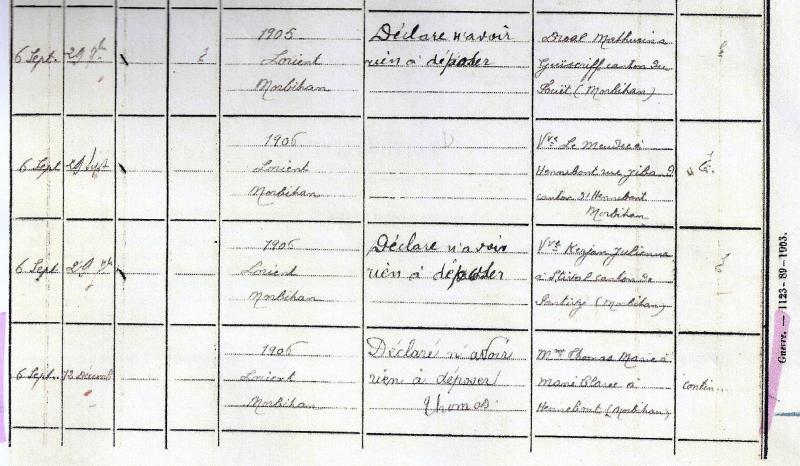 6 Sept. 29 7bre
1905
Lorient
Morbihan
Déclare n'avoir
rien à déposer
Droal Mathurin à
Guiscriff canton du
Faouët (Morbihan)
6 Sept 29 Sept
1906
Lorient
Morbihan
Vve Le Mendec à
Hennebont rue
canton d'Hennebont
Morbihan
6 Sept
1906
Lorient
Morbihan
Déclare n'avoir
rien à déposer
Vve Kerjan Julienne
à Stival canton de
Pontivy (Morbihan)
6 Sept. 12 Décemb
1906
Lorient
Morbihan
Déclaré n'avoir
rien à déposer
Thomas
Mme Thomas Marie à
Hennebont (Morbihan)
Guerre. — 1123-89-1903.